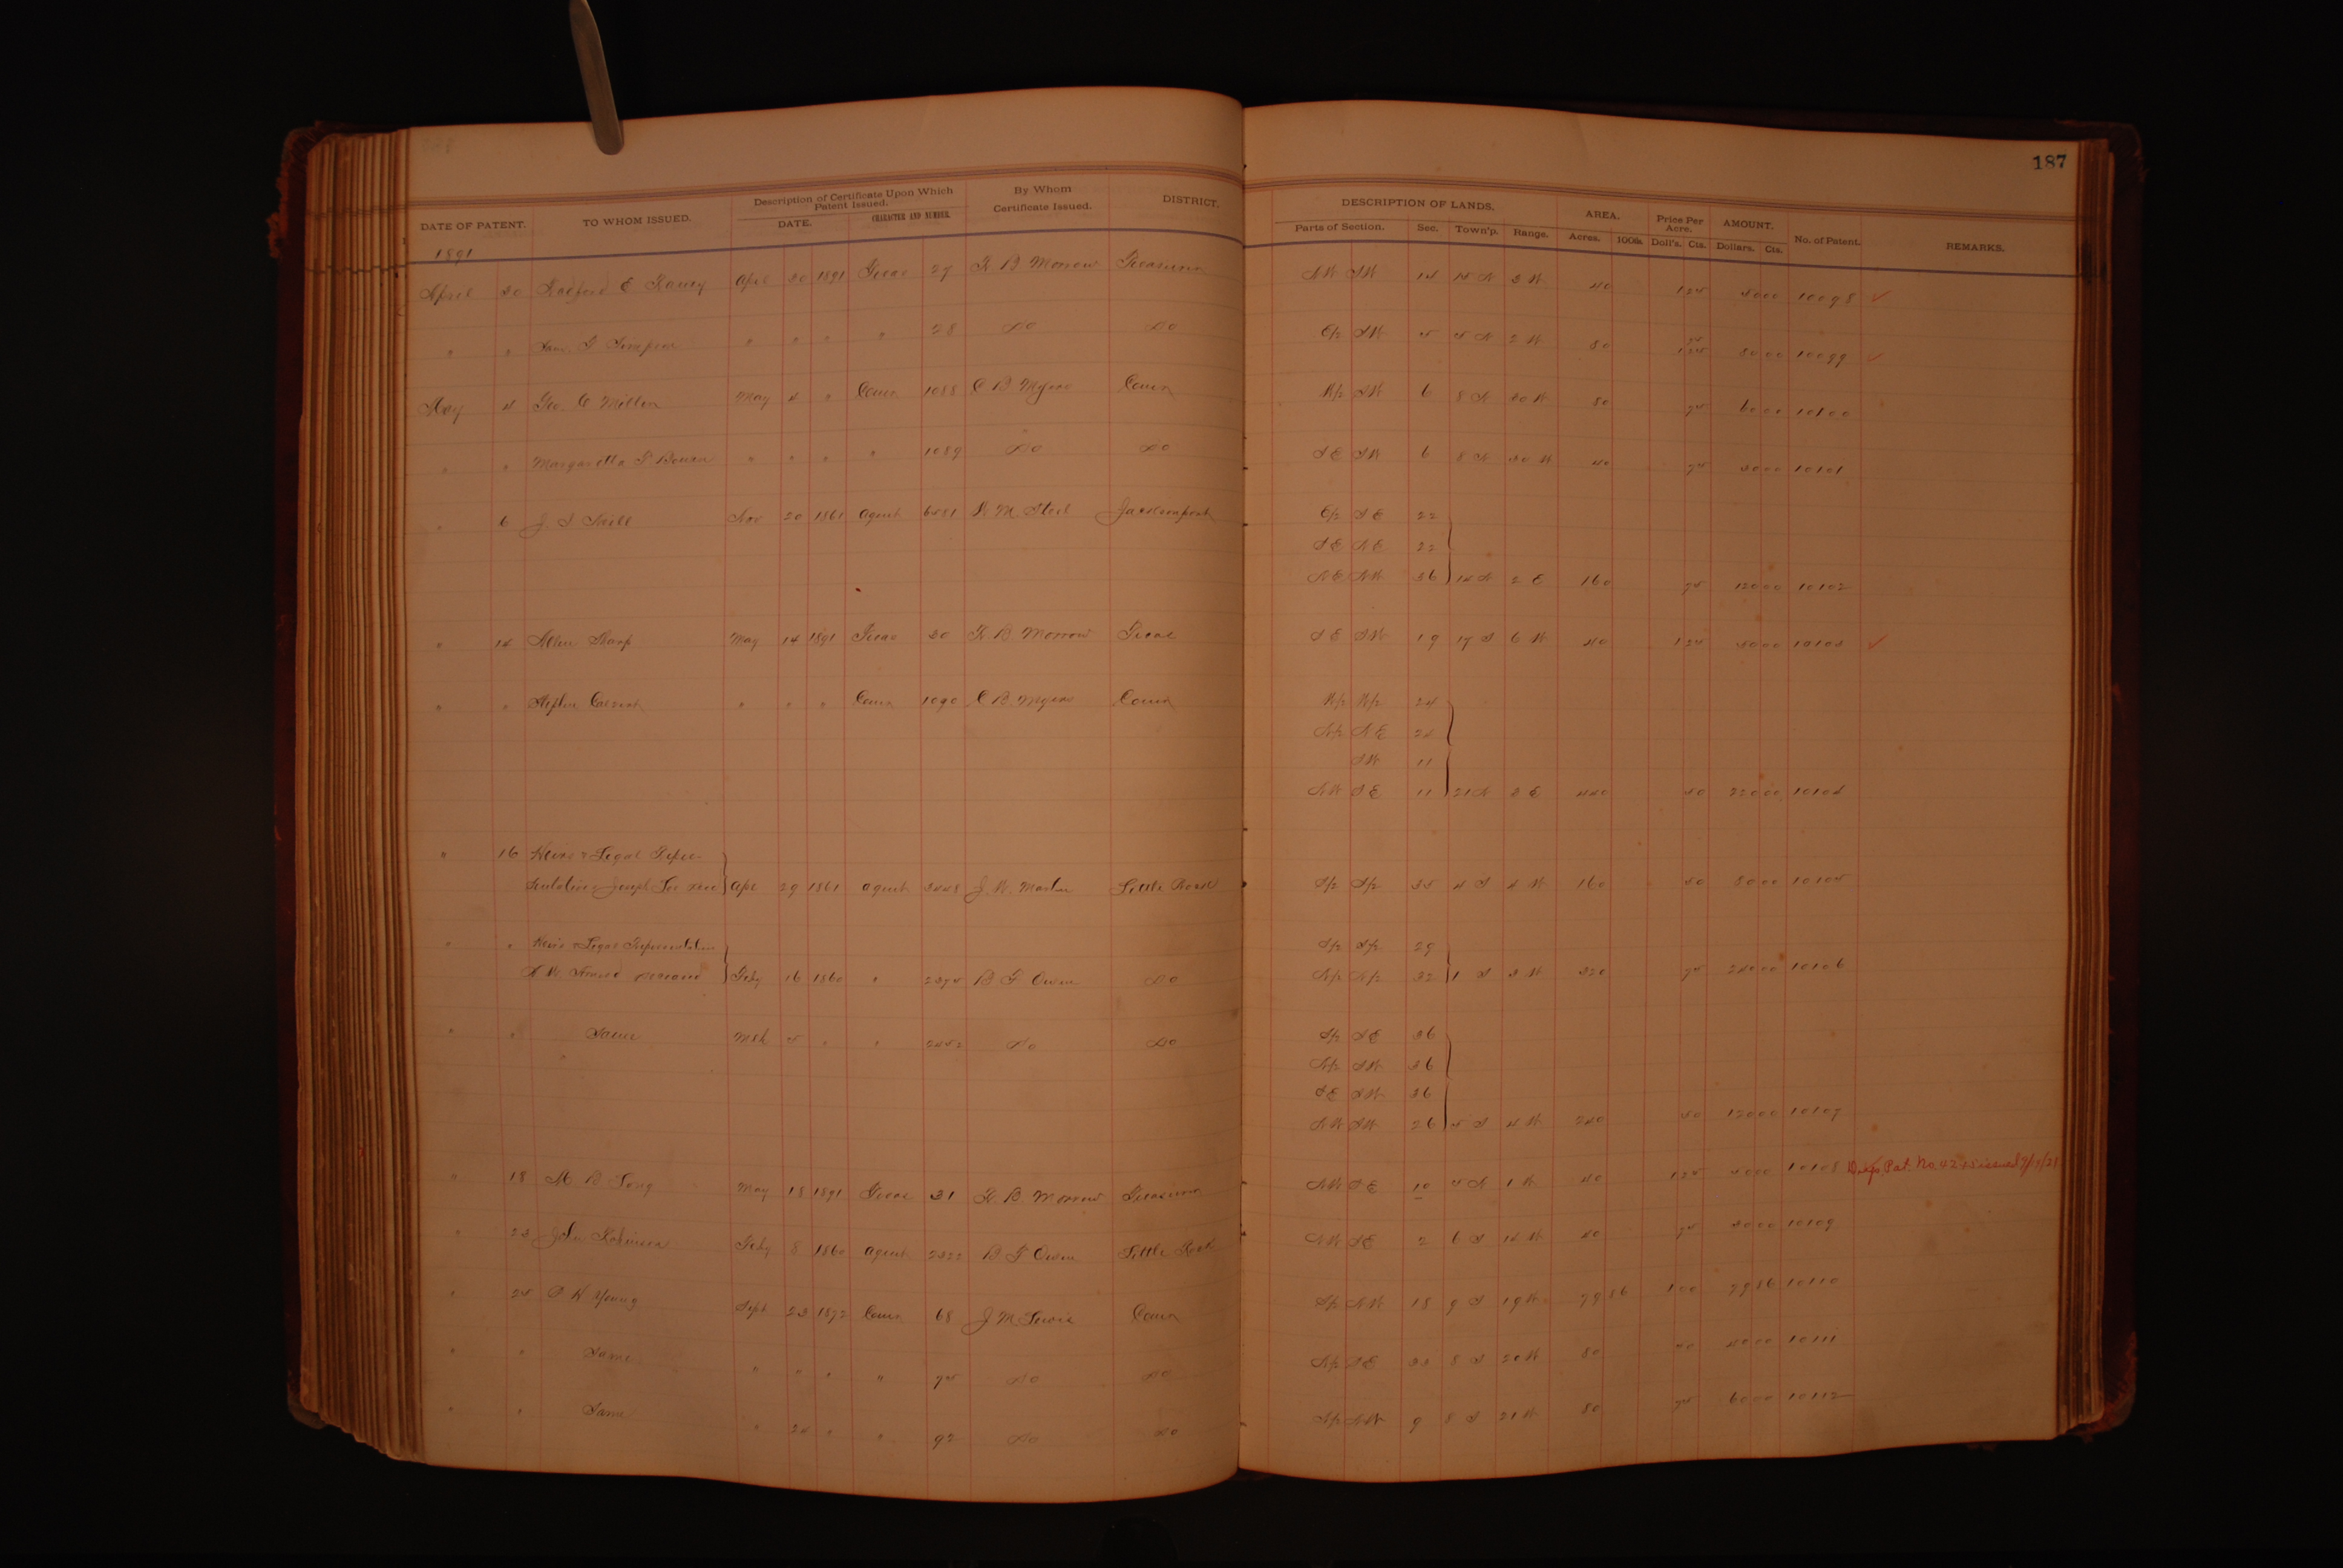 187
DATE OF PATENT. TO WHOM ISSUED. Description of Certificate Upon Which Patent Issued. DATE. CHARACTER AND NUMBER. By Whom Certificate Issued. DISTRICT. DESCRIPTION OF LANDS. Parts of Section. Sec. Town'p. Range. AREA. Acres. 100ths. Price Per Acre. Doll's. Cts. AMOUNT. Dollars. Cts. No. of Patent. REMARKS.
1891
April 20 E Apl 20 1891 Treas 27 B Morrow Treasurer NW SW 14 3 W 40 1 25 50 00 10098 ✓
" " " " " " 28 Do Do E/2 SW 5 5 N 2 W 80 80 00 10099 ✓
May 4 Geo. C Miller May 4 " Comr 1088 C B Myers Comr W/2 SW 6 8 N 30 W 80 75 60 00 10100
" " Margaretta F Bowen " " " " 1089 Do Do SE SW 6 8 N 30 W 40 75 30 00 10101
" 6 J. S Nov 20 1861 Agent W M Steel Jacksonport E/2 SE 22
SE NE 22
NE NW 36 14 N 2 E 160 75 120 00 10102
" 14 Allen Sharp May 14 1891 Treas 30 B. Morrow Treas SE SW 19 17 S 6 W 40 1 25 50 00 10103 ✓
" " " " " Comr 1090 C B. Myers Comr W/2 W/2 24
N/2 NE 24
SW 11
NW SE 11 21 N 3 E 440 50 220 00 10104
" 16 Heirs & Legal Repre-
sentatives Apl 29 1861 agent 3448 J. W. Martin Little Rock S/2 S/2 35 4 S 4 W 160 50 80 00 10105
" " Heirs & Legal Representatives S/2 S/2 29
deceased Feby 16 1860 " 2375 B F Owen Do N/2 N/2 32 1 S 3 W 320 75 240 00 10106
" " Same Mch 5 " " 2452 Do Do S/2 SE 36
N/2 SW 36
SE SW 36
NW SW 26 5 S 4 W 240 50 120 00 10107
" 18 B Long May 18 1891 Treas 31 B Morrow Treasurer NW SE 10 5 N 1 W 40 1 25 50 00 10108 Dup. Pat. No issued
" 23 John Robinson Feby 8 1860 Agent 2322 B F Owen Little Rock NW SE 2 6 S 14 W 40 75 30 00 10109
" 25 P H Young Sept 23 1872 Comr 68 J M Lewis Comr S/2 NW 18 9 S 19 W 79 86 1 00 79 86 10110
" " Same " " " " 75 Do Do N/2 SE 33 8 S 20 W 80 50 40 00 10111
" " Same " 24 " " 92 Do Do N/2 NW 9 8 S 21 W 80 75 60 00 10112